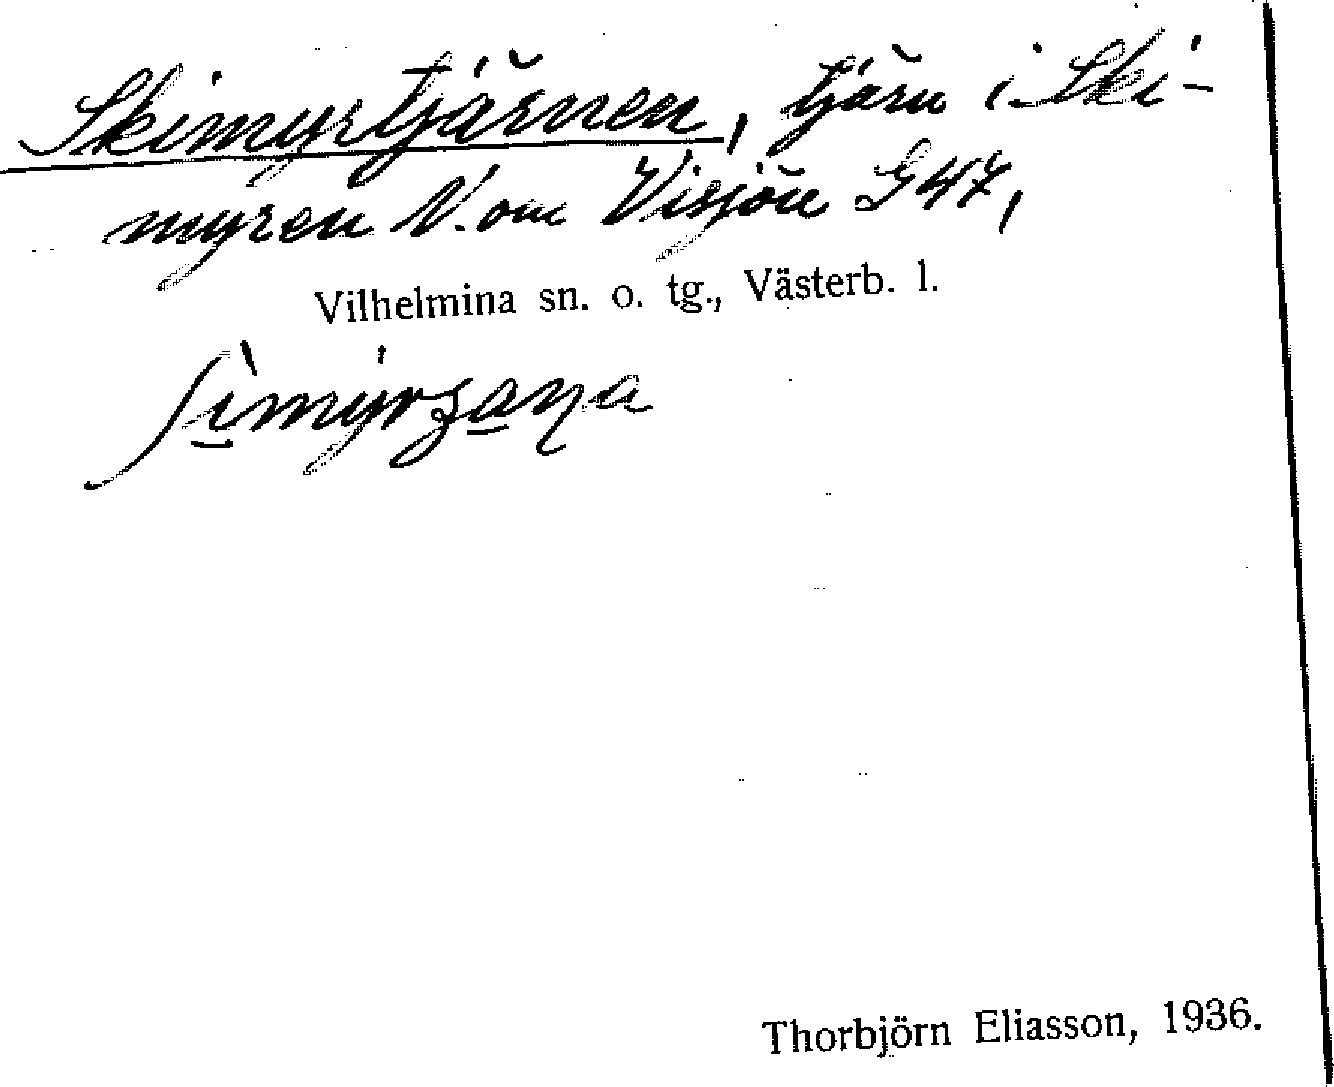 Skimyrtjärnen, tjärn i Ski-
myren N. om Visjön G 47,
Vilhelmina sn. o. tg., Västerb. l.
Thorbjörn Eliasson, 1936.